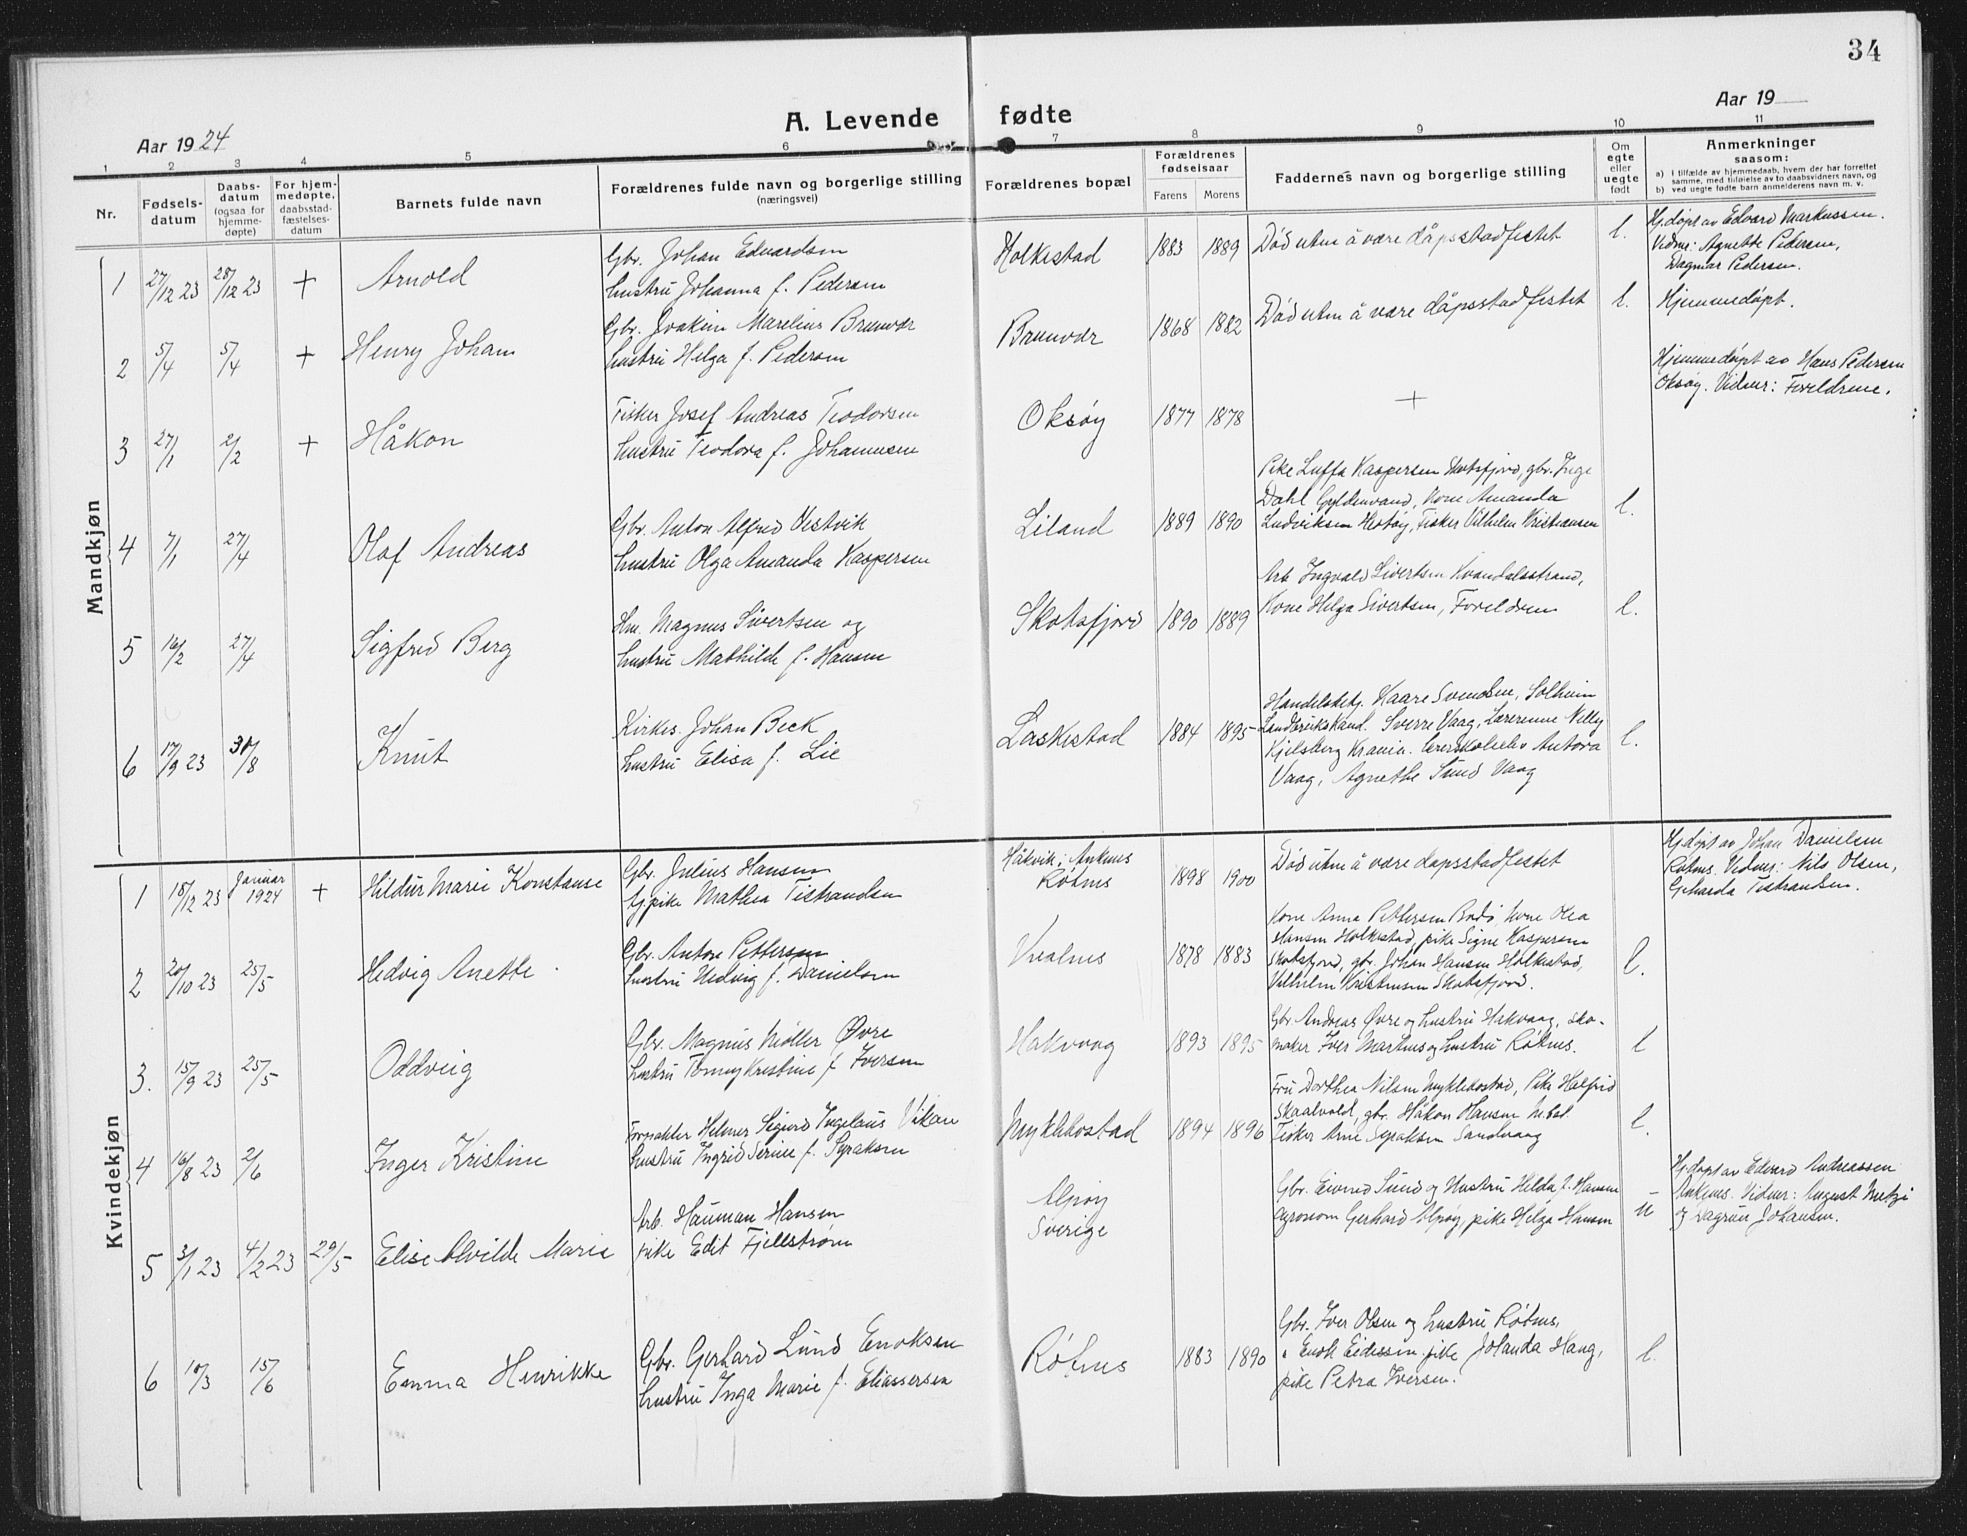 34
A. Levende fødte
Aar 1924
Aar 19
1 2 3 4 5 6 7 8 9 10 11
Nr.
Fødsels-
datum
Daabs-
datum
(ogsaa for
hjemme-
døpte)
For hjem-
medøpte,
daabsstad-
fæstelses-
datum
Barnets fulde navn
Forældrenes fulde navn og borgerlige stilling
(næringsvei)
Forældrenes bopæl
Forældrenes
fødselsaar
Farens
Morens
Faddernes navn og borgerlige stilling
Om
egte
eller
uegte
født
Anmerkninger
saasom:
a) I tilfælde av hjemmedaab, hvem der har forrettet
samme, med tilføielse av to daabsvidners navn, og
b) ved uegte fødte barn anmelderens navn m. v.
Mandkjøn
1 27/12 23 28/12 23 + Arnold
Gbr. Johan Edvardsen
hustru Johanna f. Pedersen
Holkestad 1883 1889
Død uten å være dåpsstadfestet
Hj.døpt av Edvard Markussen.
Vidne: Agnethe Pedersen,
Dagmar Pedersen.
2 5/4 5/4 + Henry Johan
Gbr. Joakim Marelius Brunvær
hustru Helga f. Pedersen
Brunvær 1868 1882
Død uten å være dåpsstadfestet
Hjemmedøpt.
3 27/1 2/2 + Håkon
Fisker Josef Andreas Teodorsen
hustru Teodora f. Johannesen
Oksøy 1877 1878
+
Hjemmedøpt av Hans Pedersen
Oksøy. Vidner: Foreldrene.
4 7/1 27/4 Olaf Andreas
Gbr. Anton Alfred Vestvik
hustru Olga Amanda Kaspersen
Liland 1889 1890
Pike Luffa Kaspersen Skotsfjord, gbr. Inge
Dahl Gyldenvand, Kone Amanda
Ludviksen Hestøy, Fisker Vilhelm Kristiansen
5 16/2 27/4 Sigfred Berg
Hm. Magnus Sivertsen og
hustru Mathilde f. Hansen
Skotsfjord 1890 1889
Arb. Ingvald Sivertsen Kvandalsstrand,
Kone Helga Sivertsen, Foreldren
6 17/9 23 31/8 Knut
Kirkes. Johan Beck
hustru Elisa f. Lie
Laskestad 1884 1895
Handelsbetj. Kaare Svendsen, Solheim
Landbrukskand. Sverre Vaag, Lærerinne Nelly
Kjelsberg Krania. Lærerskoleelev Antora
Vaag, Agnethe Sund Vaag
Kvindekjøn
1 15/12 23 Januar
1924 + Hildur Marie Konstanse
Gbr. Julius Hansen
tj.pike Mathea Tistrandsen
Håkvik; Ankenes
Røtnes 1898 1900
Død uten å være dåpsstadfestet
Hj.døpt av Johan Danielsen
Røtnes. Vidner: Nils Olsen,
Gerharda Tistrandsen.
2 20/10 23 25/5 Hedvig Anette
Gbr. Anton Pettersen
hustru Hedvig f. Danielsen
1878 1883
Kone Anna Pettersen Bodø, Kone Olea
Hansen Holkestad, pike Signe Kaspersen
Skotsfjord, gbr. Johan Hansen Holkestad,
Vilhelm Kristiansen Skotsfjord.
3. 15/9 23 25/5 Oddveig
Gbr. Magnus Møller Øvre
hustru Tomny Kristine f. Iversen
Hakvaag 1893 1895
Gbr Andreas Øvre og hustru Hakvaag, sko-
maker Iver Martinus og hustru Røtnes.
4 16/8 23 2/6 Inger Kristine
Forpakter Helmer Sigurd Ingelaus Vikan
hustru Ingrid Serine f. Syraksen
Myklebostad 1894 1896
Fru Dorthea Nilsen Myklebostad, Pike Halfrid
Skaalvold, gbr. Håkon Hansen M.bst
Fisker Arne Syraksen Sandvaag
5 3/1 23 4/2 23 29/5 Elise Alvilde Marie
Arb. Hauman Hansen
pike Edit Fjellstrøm
Alpøy
Sverige
Gbr. Eivind Sund og Hustru Hilda f. Hansen
Agronom Gerhard Alpøy, pike Helga Hansen
u
Hj.døpt av Edvard Andreassen
Ankenes. Vidner: August Metzi
og Dagrun Johansen.
6 10/3 15/6 Emma Henrikke
Gbr. Gerhard Lund Enoksen
hustru Inga Marie f. Eliassersen
Røtnes 1883 1890
Gbr. Iver Olsen og hustru Røtnes,
" Enok Eidessen pike Jolanda Haag,
pike Petra Iversen.